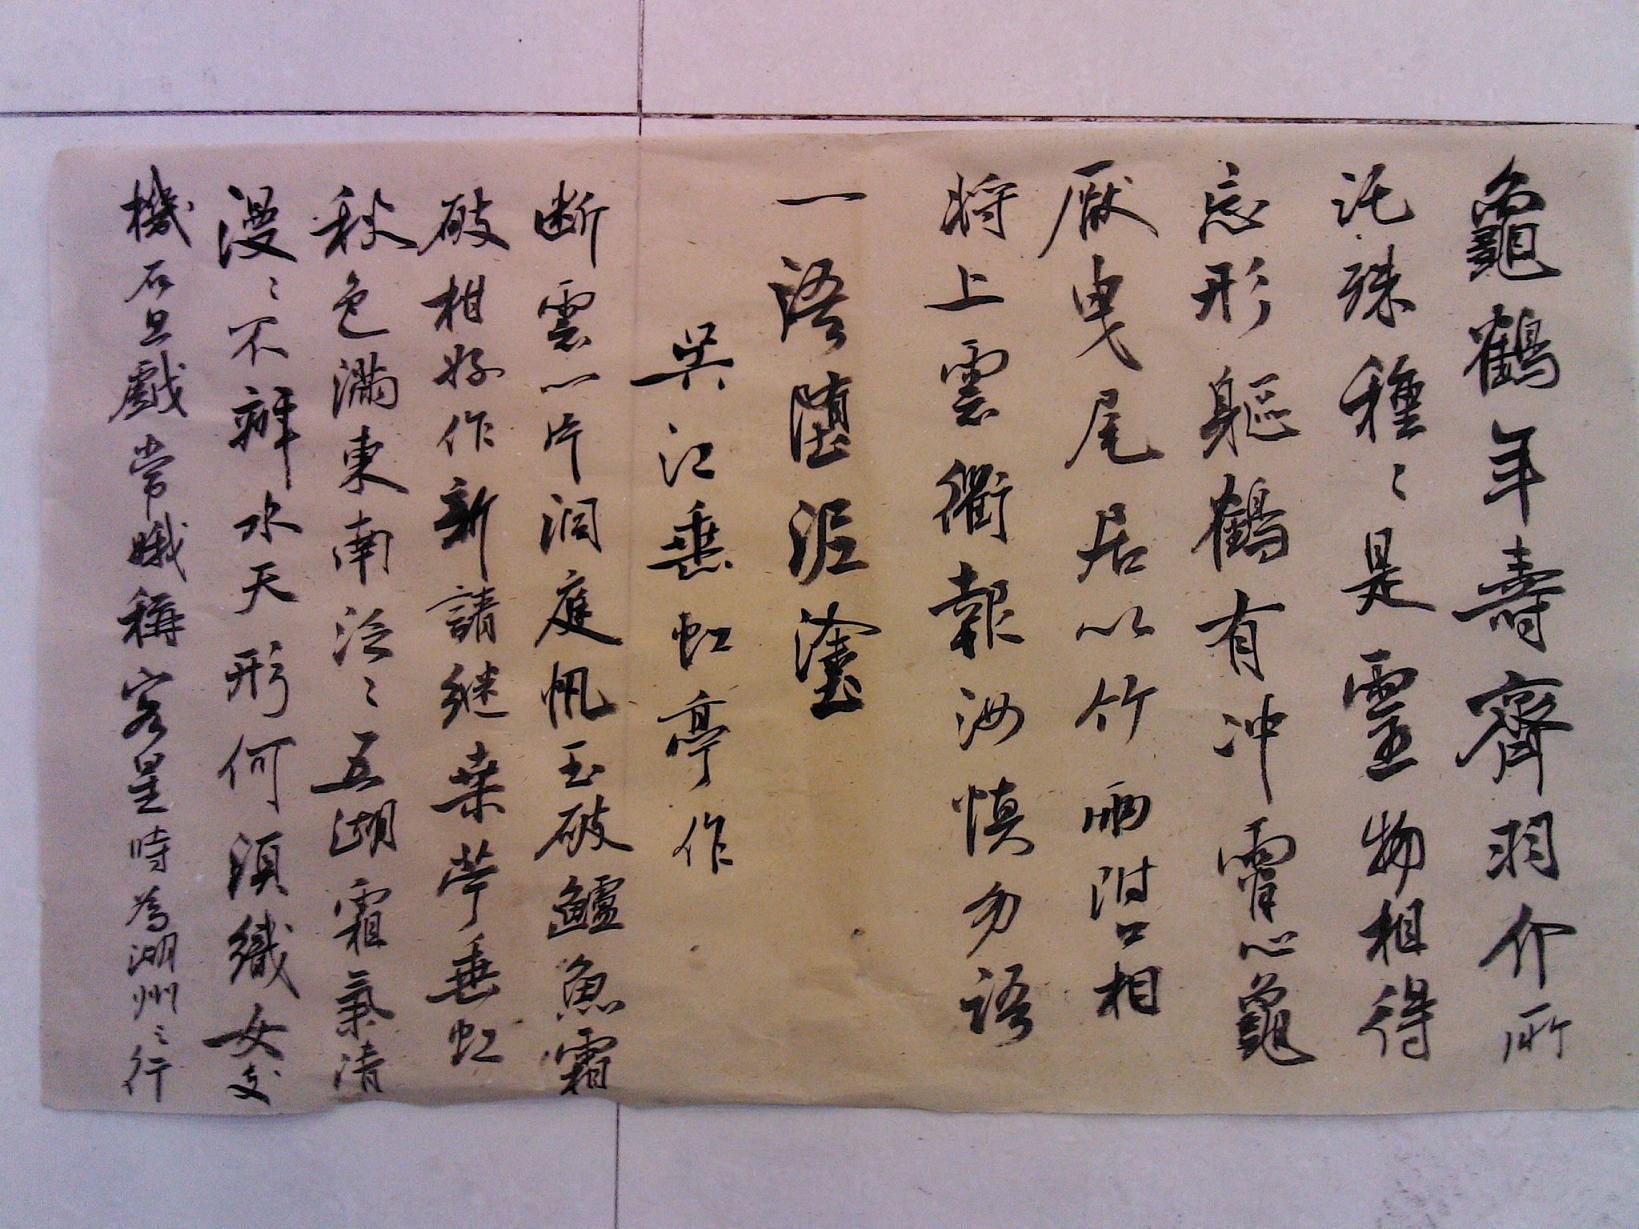 龜鶴年壽齊羽介所
託殊種々是靈物相得
忘形軀鶴有冲霄心龜
厭曳尾居以竹兩附口相
將上雲衢報汝慎勿語
一語墮泥塗
吳江垂虹亭作
断雲一片洞庭帆玉破鱸魚霜
破柑好作新請継桑苧垂虹
秋色滿東南泛々五湖霜氣清
漫々不辨水天形何須織女支
機石且戲常娥稱客星時為湖州之行